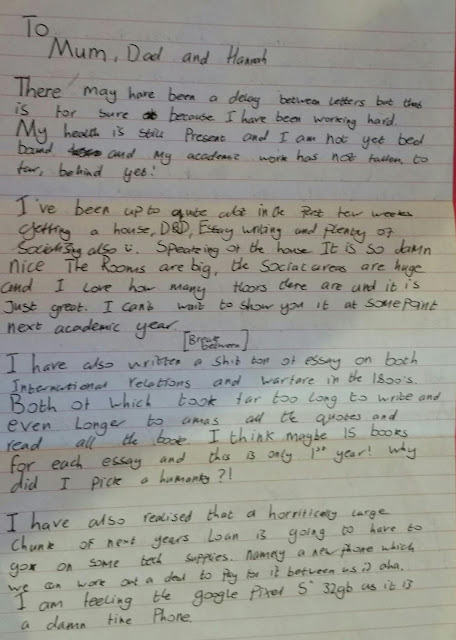 To
Mum, Dad and Hannah
There may have been a delay between letters but this
is for sure because I have been working hard.
My health is still Present and I am not yet bed
bound and my academic work has not fallen to
far, behind yet!
I've been up to quite alot in the Past few weeks
getting a house, D&D, Essay writing and plenty of
Socialising also ü. Speakeing of the house It is so damn
nice The Rooms are big, the Social areas are huge
and I love how many floors there are and it is
Just great. I can't wait to show you it at some Point
next academic year
[Break between]
I have also written a shit ton of essay on both
International relations and warfare in the 1800's.
Both of which took far too long to write and
even Longer to amas all the quotes and
read all the book I think maybe 15 books
for each essay and this is only 1st year! Why
did I Pick a humanity?!
I have also realised that a horrifically large
Chunk of next years Loan is going to have to
go on some tech supplies. namely a new phone which
we can work out a deal to Pay for it between us :) aha.
I am feeling the google Pixel 5" 32gb as it is
a damn fine Phone.